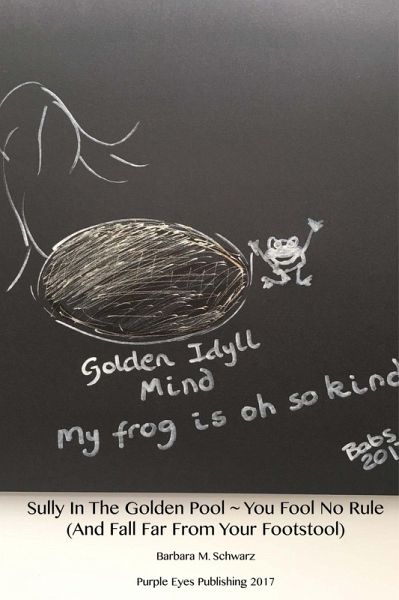 Golden Idyll
Mind
My frog is oh so kind
Babs
201
Sully In The Golden Pool ~ You Fool No Rule
(And Fall Far From Your Footstool)
Barbara M. Schwarz
Purple Eyes Publishing 2017